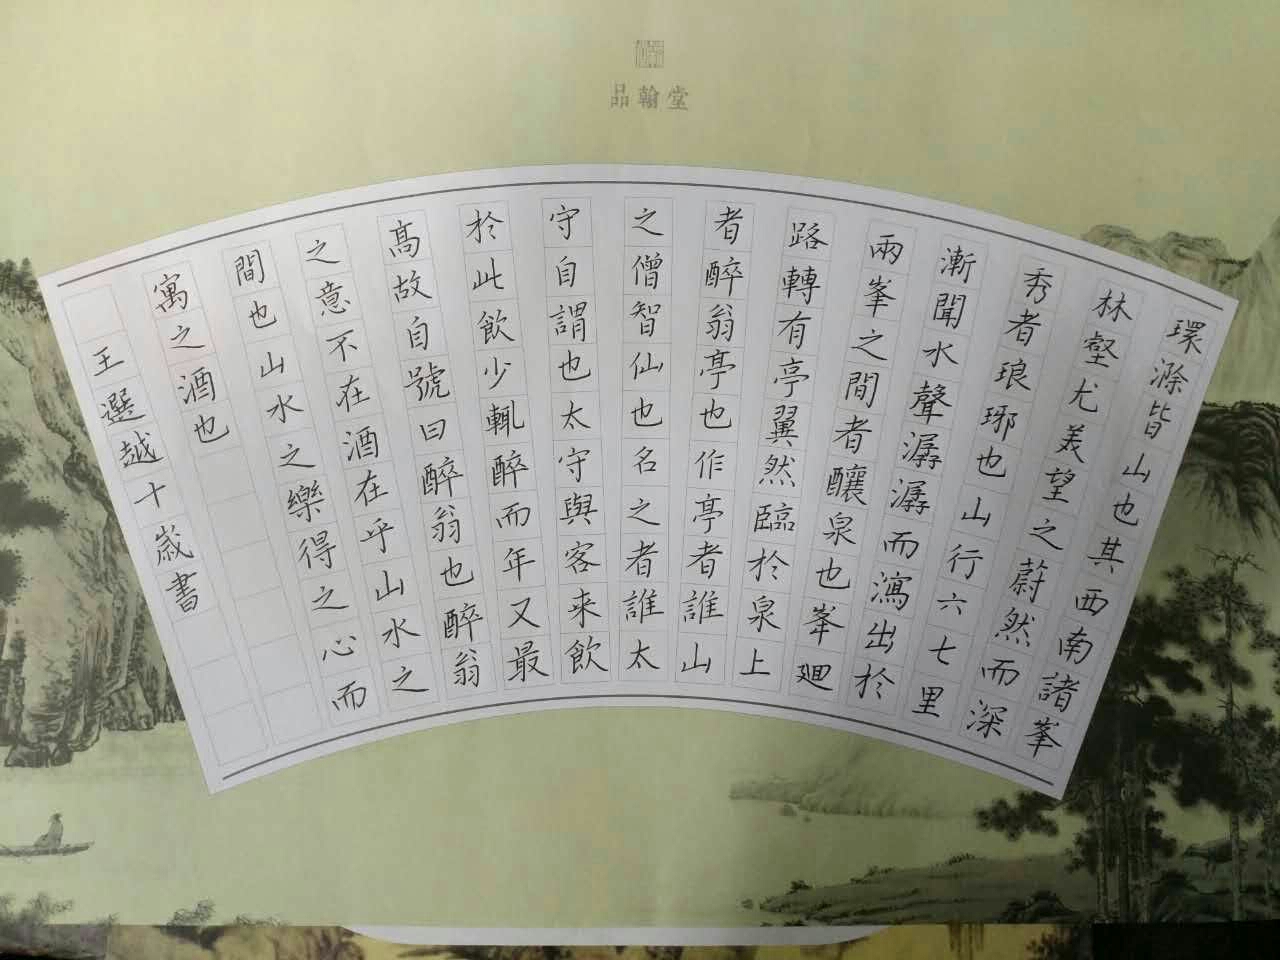 品翰堂
環滁皆山也其西南諸峯
林壑尤美望之蔚然而深
秀者琅琊也山行六七里
漸聞水聲潺潺而瀉出於
兩峯之間者釀泉也峯廻
路轉有亭翼然臨於泉上
者醉翁亭也作亭者誰山
之僧智仙也名之者誰太
守自謂也太守與客来飲
於此飲少輒醉而年又最
髙故自號曰醉翁也醉翁
之意不在酒在乎山水之
間也山水之樂得之心而
寓之酒也
王選越十歲書